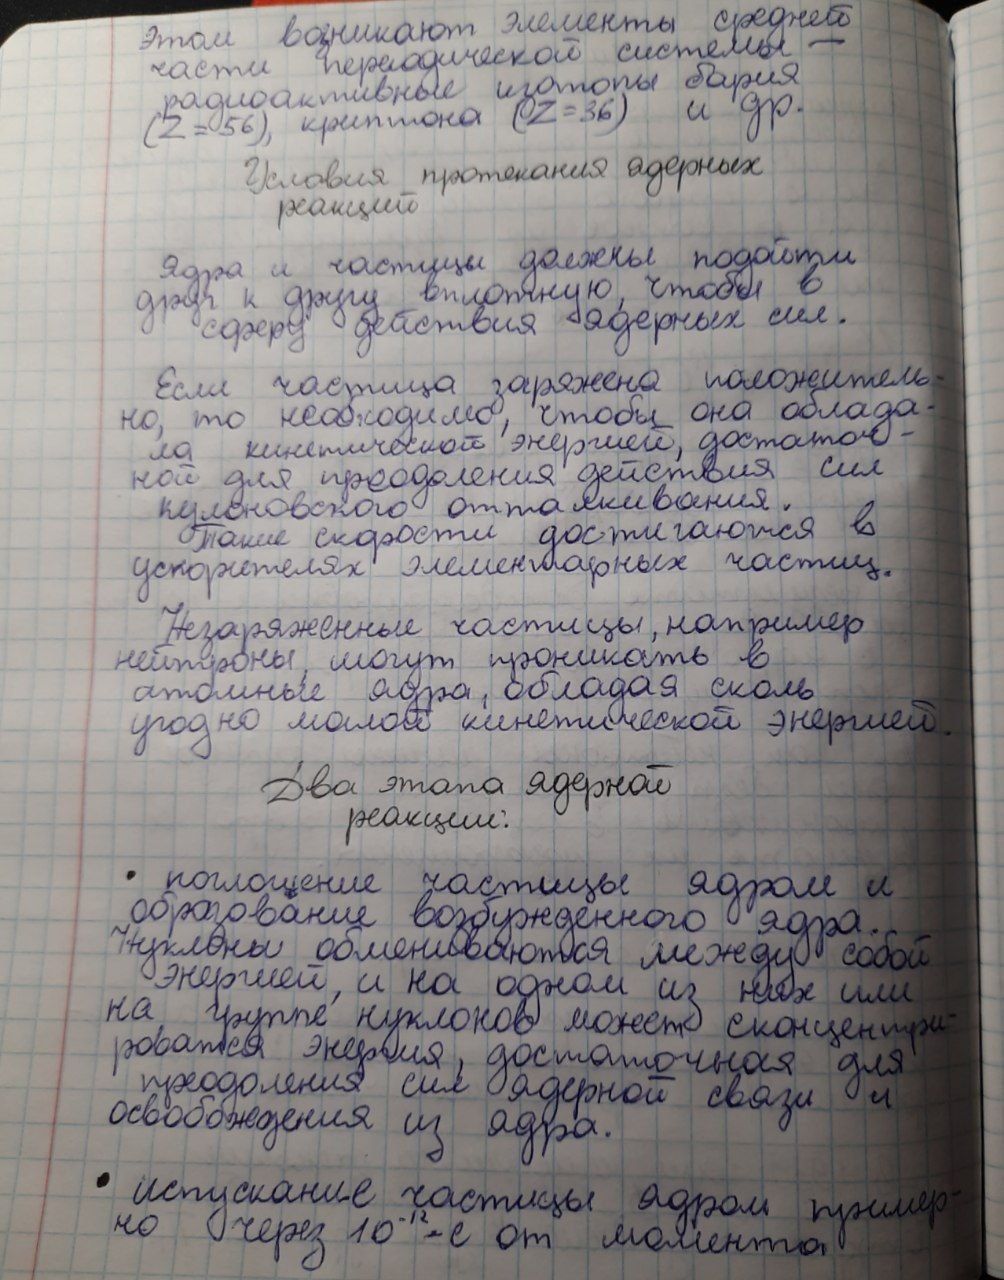 этом возникают элементы средней
части периодической системы —
радиоактивные изотопы бария
(Z = 56), криптона (Z = 36) и др.
Условия протекания ядерных
реакций
Ядра и частицы должны подойти
друг к другу вплотную, чтобы в
сферу действия ядерных сил.
Если частица заряжена положитель-
но, то необходимо, чтобы она облада-
ла кинетической энергией, достаточ-
ной для преодоления действия сил
кулоновского отталкивания.
Такие скорости достигаются в
ускорителях элементарных частиц.
Незаряженные частицы, например
нейтроны, могут проникать в
атомные ядра, обладая сколь
угодно малой кинетической энергией.
Два этапа ядерной
реакции:
• поглощение частицы ядром и
образование возбужденного ядра.
Нуклоны обмениваются между собой
энергией, и на одном из них или
на группе нуклонов может сконцентри-
роваться энергия, достаточная для
преодоления сил ядерной связи и
освобождения из ядра.
• испускание частицы ядром пример-
но через 10⁻¹² - с от момента